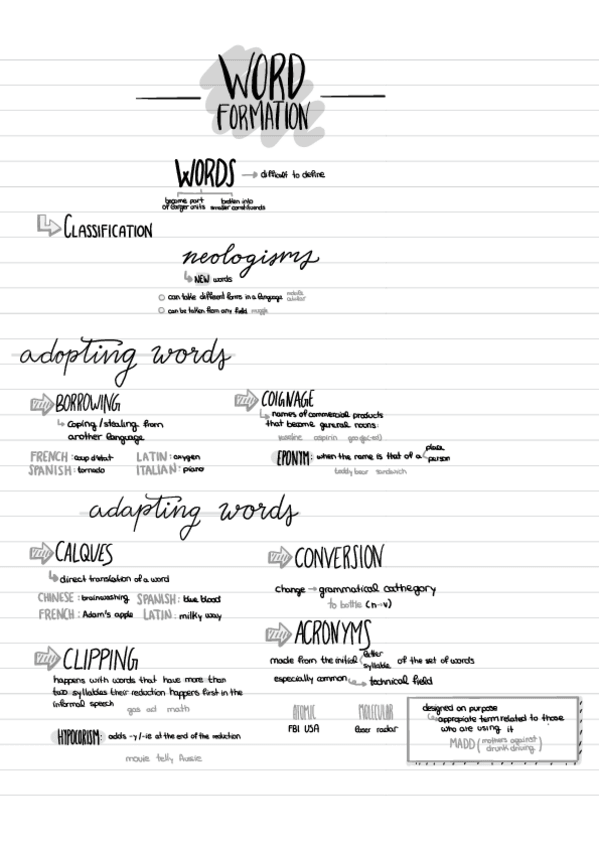 WORD
FORMATION
WORDS → difficult to define
become part of larger units
broken into smaller constituents
CLASSIFICATION
neologisms
NEW words
can take different forms in a language
can be taken from any field muggle
adopting words
BORROWING
Coping/stealing from
another language
FRENCH: coup d'état LATIN: oxygen
SPANISH: tornado ITALIAN: piano
COIGNAGE
names of commercial products
that become general nouns:
vaseline aspirin google(-ed)
EPONYM: when the name is that of a place
person
teddy bear sandwich
adapting words
CALQUES
direct translation of a word
CHINESE: brainwashing SPANISH: blue blood
FRENCH: Adam's apple LATIN: milky way
CONVERSION
change → grammatical cathegory
to bottle (n→v)
CLIPPING
happens with words that have more than
two syllables their reduction happens first in the
informal speech
gas ad math
HYPOCORISM: adds -y/-ie at the end of the reduction
movie telly Aussie
ACRONYMS
made from the initial letter
syllable of the set of words
especially common → technical field
ATOMIC MOLECULAR
FBI USA laser radar
designed on purpose
appropiate term related to those
who are using it
MADD (mothers against
drunk driving)